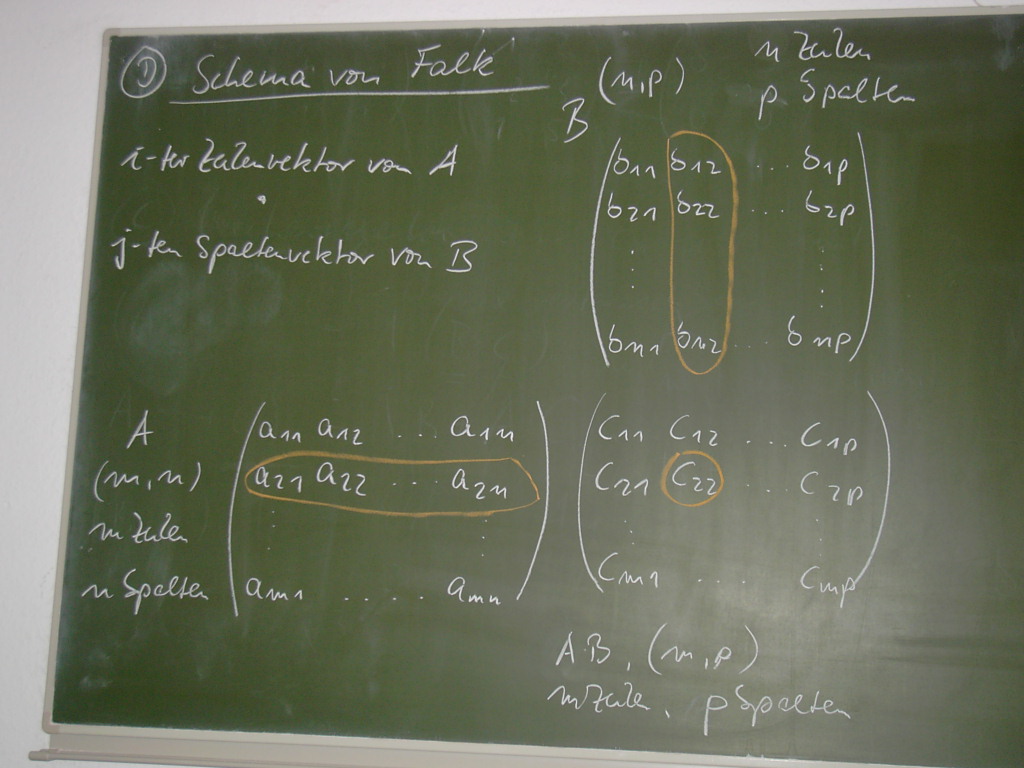 ① Schema von Falk
i-ter Zeilenvektor von A
·
j-ten Spaltenvektor von B
B (n,p) n Zeilen
p Spalten
b11 b12 ... b1p
b21 b22 ... b2p
⋮ ⋮
bn1 bn2 ... bnp
A
(m,n)
m Zeilen
n Spalten
a11 a12 ... a1n
a21 a22 ... a2n
⋮ ⋮
am1 ..... amn
c11 c12 ... c1p
c21 c22 ... c2p
⋮ ⋮
cm1 ... cmp
A·B, (m,p)
m Zeilen, p Spalten